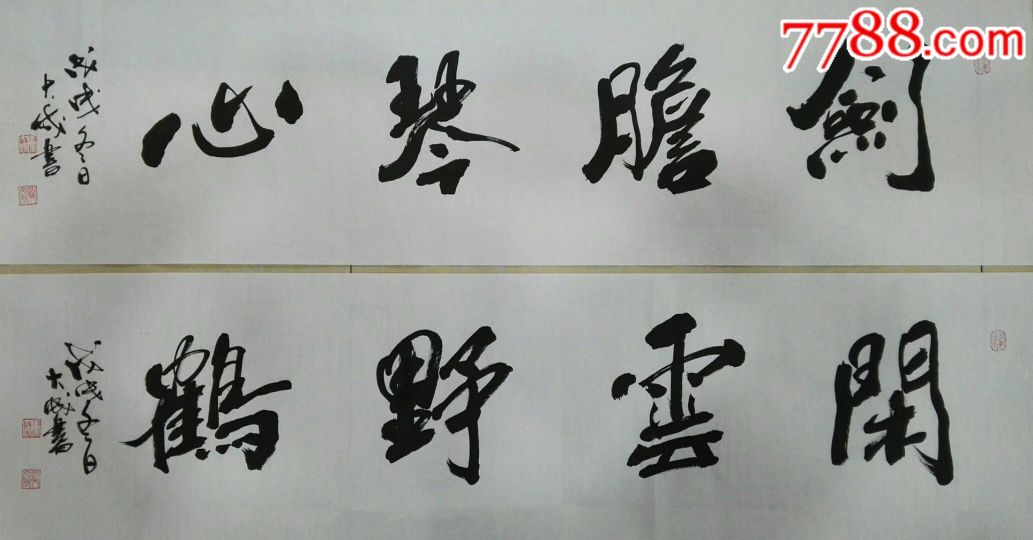 7788.com
劍膽琴心
戊戌冬日
大成書
閑雲野鶴
戊戌冬日
大成書